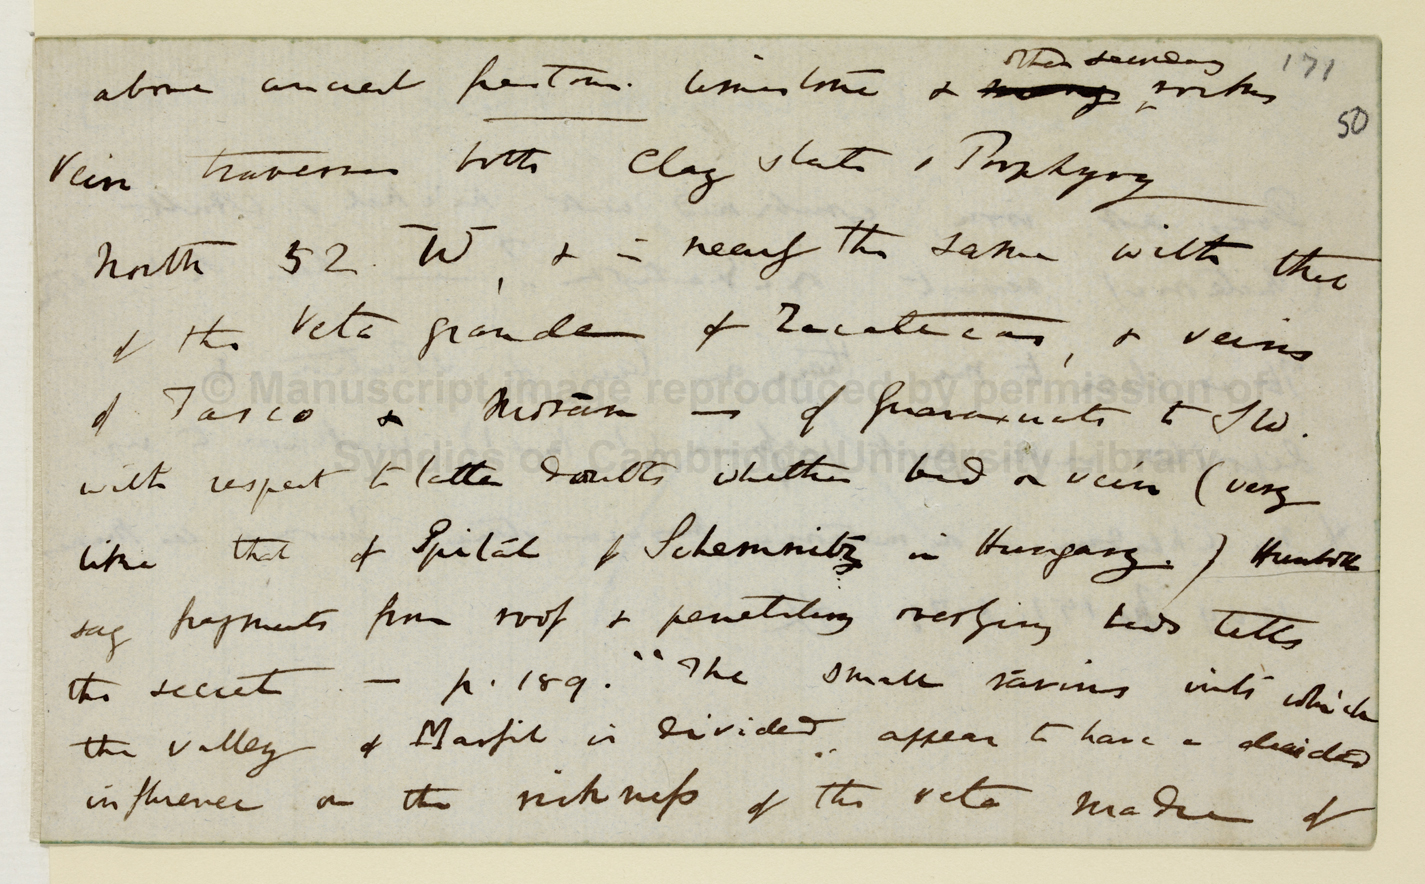 other secondary 171
above ancient freeston. limestone & many rocks
50
Vein traverses both Clay slate & Porphyry
North 52. W, & is nearly the same with that
of the Veta grande of Zacatecas, & veins
of Tasco & Moran — of Guanaxuato to SW.
with respect to latter doubts whether bed or vein (very
like that of Spital of Schemnitz in Hungary.) Humboldt
say fragments from roof & penetrating overlying beds tells
the secret — p. 189. "The small ravins into which
the valley of Marfil is divided, appear to have a decided
influence on the richness of the veta madre of
© Manuscript image reproduced by permission of
Syndics of Cambridge University Library